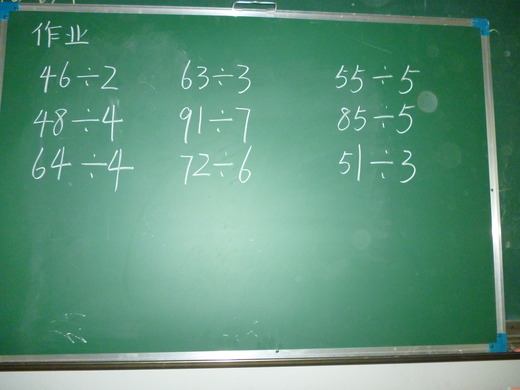 作业
46÷2 63÷3 55÷5
48÷4 91÷7 85÷5
64÷4 72÷6 51÷3